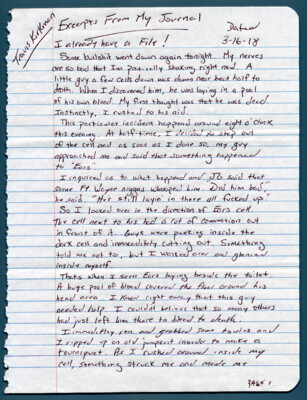 Travis Kirkman
Excerpts From My Journal
Dated
I already have a File!
3-16-18
Some bullshit went down again tonight. My nerves
are so bad that I'm practically shaking right now. A
little guy a few cells down was damn near beat half to
death. When I discovered him, he was laying in a pool
of his own blood. My first thought was that he was dead.
Instinctly, I rushed to his aid.
This particular incident happened around eight o'clock
this evening. At half-time, I decided to step out
of the cell and as soon as I done so, my guy
approached me and said that something happened
to
I inquired as to what happend and JB said that
some Ft Wayne niggas whooped him. Did him bad,"
he said. "He's still layin' in there all fucked up."
So I looked over in the direction of cell.
The cell next to his had a lot of commotion out
in front of it. Guys were peeking inside the
dark cell and immeaditely cutting out. Something
told me not to, but I walked over and glanced
inside myself.
Thats when I seen laying beside the toilet.
A huge pool of blood covered the floor around his
head area. I knew right away that this guy
needed help. I couldnt believe that so many others
had just left him there to bleed to death.
I immeditley ran and grabbed some towles and
I ripped up an old jumpsuit inorder to make a
tourniquet. As I rushed around inside my
cell, something struck me and made me
PAGE 1